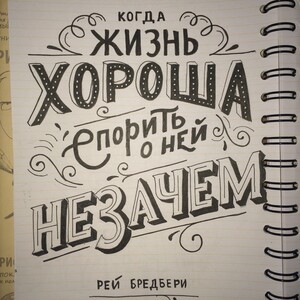 КОГДА
ЖИЗНЬ
ХОРОША
СПОРИТЬ
О НЕЙ
НЕЗАЧЕМ
РЕЙ БРЕДБЕРИ